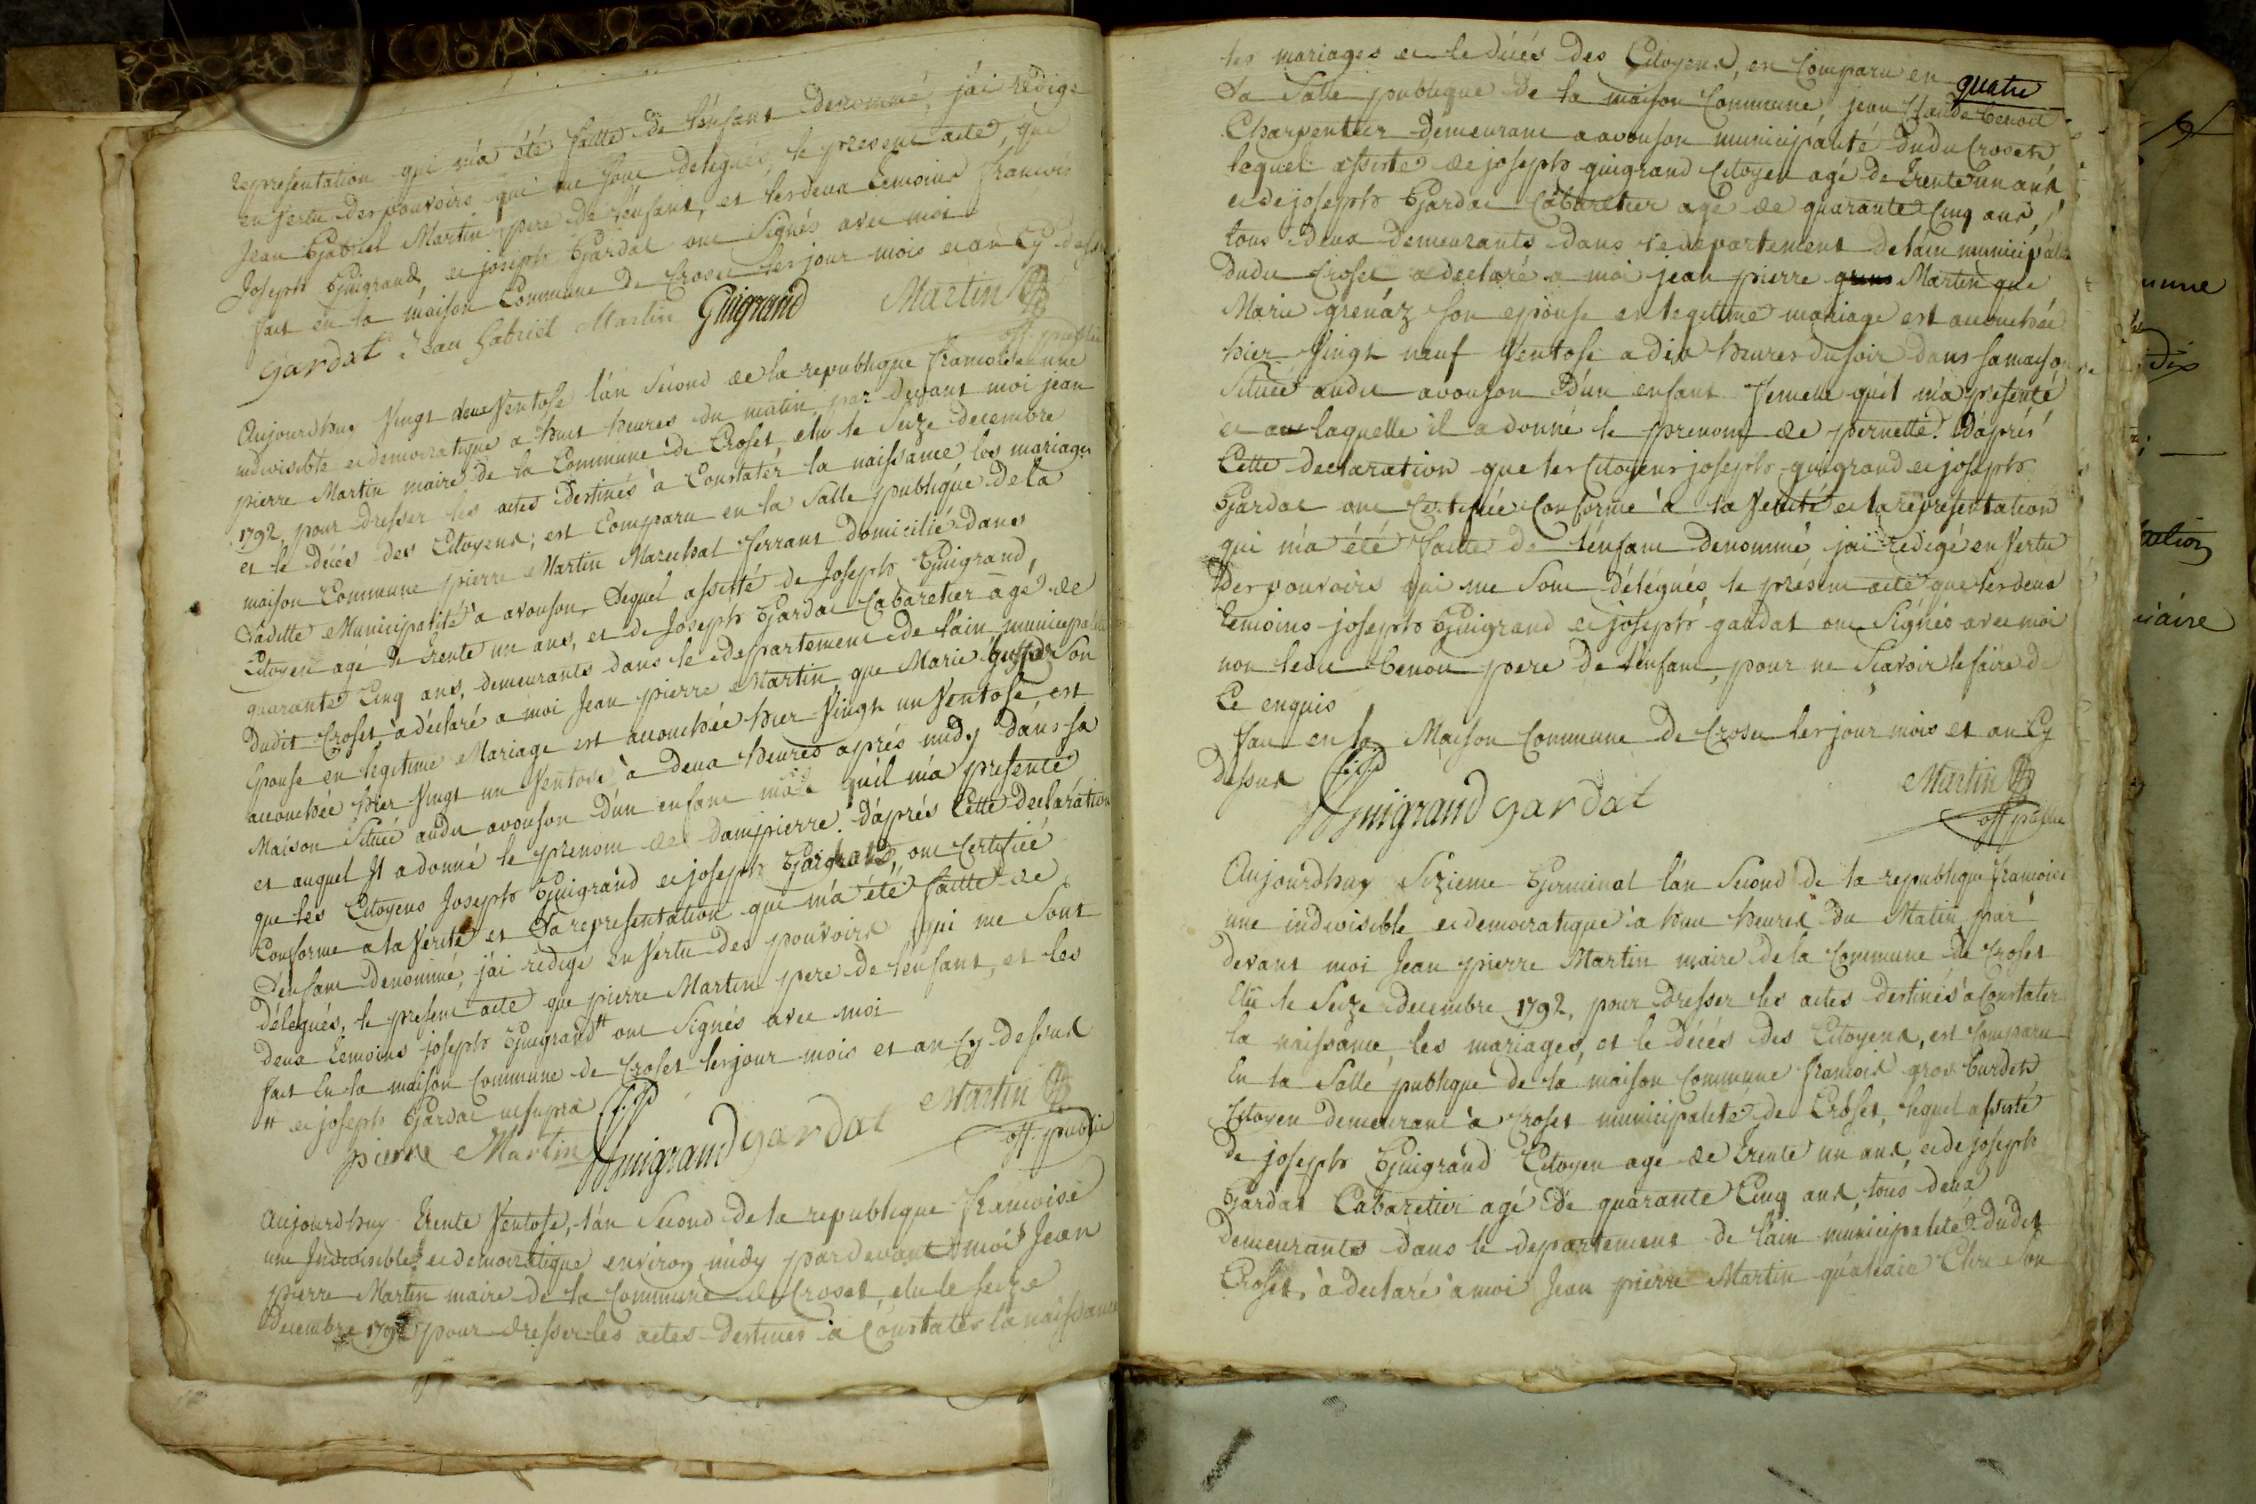 representation qui m'a été faitte de l'enfant denommé, j'ai redigé
en vertu des pouvoirs qui me sont delegués, le present acte, que
Jean Gabriel Martin pere de l'enfant, et les deux temoins francois
Joseph Guigrand, et joseph Gardat ont signés avec moi
fait en la maison Commune de Croset les jour mois et an cy dessus
Gardat Jean Gabriel Martin Guigrand Martin
off. public
Aujourdhuy vingt deux Ventose l'an Second de la republique francoise une
indivisible et democratique a huit heures du matin par devant moi jean
pierre Martin maire de la Commune de Croset elu le Seize decembre
1792, pour dresser les actes destinés à Constater la naissance les mariages
et le décés des Citoyens; est Comparu en la Salle publique de la
maison Commune pierre Martin Marechal ferrant domicilié dans
Laditte Municipalité a avouson, Lequel assisté de Joseph Guigrand,
Citoyen agé de trente un ans, et de Joseph Gardat Cabaretier agé de
quarante Cinq ans, demeurants dans le departement de l'ain municipalité
dudit Croset, a déclaré a moi Jean pierre Martin, que Marie son
Epouse en legitime Mariage est accouchée hier Vingt un Ventose, est
accouchée hier Vingt un Ventose à deux heures aprés midy dans sa
Maison Située audit avouson D'un enfant male qu'il m'a presenté
et auquel Il a donné le prenom de dampierre. D'aprés Cette declaration
que les Citoyens Joseph Guigrand et joseph ont Certifiée
Conforme a la Verité et La representation qui m'a été faitte de
L'enfant denommé, j'ai redigé En Vertu des pouvoirs qui me Sont
délegués, le present acte que pierre Martin pere de l'enfant, et les
deux temoins joseph Guigrand # ont Signés avec moi
fait En la maison Commune de Croset les jour mois et an Cy dessus
# et joseph Gardat ut supra
pierre Martin Guigrand gardat Martin
off. public
Aujourdhuy trente Ventose, l'an Second de la republique francoise
une Indivisible et democratique environ midy par devant moi Jean
pierre Martin maire de la Commune de Croset, elu le seize
decembre 1792 pour dresser les actes destinés à Constater la naissance
quatre
les mariages et le décés des Citoyens, est Comparu en
La Salle publique de la maison Commune jean Claude benoit
Charpentier demeurant a avouson municipalité dudit Croset
lequel assisté de joseph guigrand Citoyen agé de trente un ans,
et de joseph Gardat Cabaretier agé de quarante Cinq ans,
tous deux demeurants dans le departement de lain municipalité
dudit Croset a declaré a moi jean pierre Martin que
Marie grenáz son epouse en legitime mariage est accouchée
hier Vingt neuf Ventose a dix heures du soir dans sa maison
Située audit avouson D'un enfant femelle qu'il m'a presenté
et a laquelle il a donné le prenom de pernette. D'aprés
Cette declaration que les Citoyens joseph guigrand et joseph
Gardat ont Certifiée Conforme à la Verité et la representation
qui m'a été faitte de l'enfant denommé j'ai redigé en Vertu
des pouvoirs qui me sont délégués le présent acte que les deux
temoins joseph Guigrand et joseph gardat ont Signés avec moi
non ledit benoit pere de l'enfant, pour ne Scavoir le faire de
Ce enquis
fait en la Maison Commune de Croset les jour mois et an Cy
dessus
Guigrand gardat Martin
off. public
Aujourdhuy Sizieme Germinal l'an Second de la republique francoise
une indivisible et democratique à huit heures du Matin par
devant moi Jean pierre Martin maire de la Commune de Croset
Elu le Seize decembre 1792, pour dresser les actes destinés à Constater
la naissance, les mariages, et le décés des Citoyens, est Comparu
En la Salle publique de la maison Commune francois gros burdet
Citoyen demeurant à Croset municipalité de Croset, lequel assisté
de joseph Guigrand Citoyen agé de trente un ans, et de joseph
Gardat Cabaretier agé de quarante Cinq ans, tous deux
demeurants dans le departement de lain municipalité dudit
Croset, à declaré à moi Jean pierre Martin son